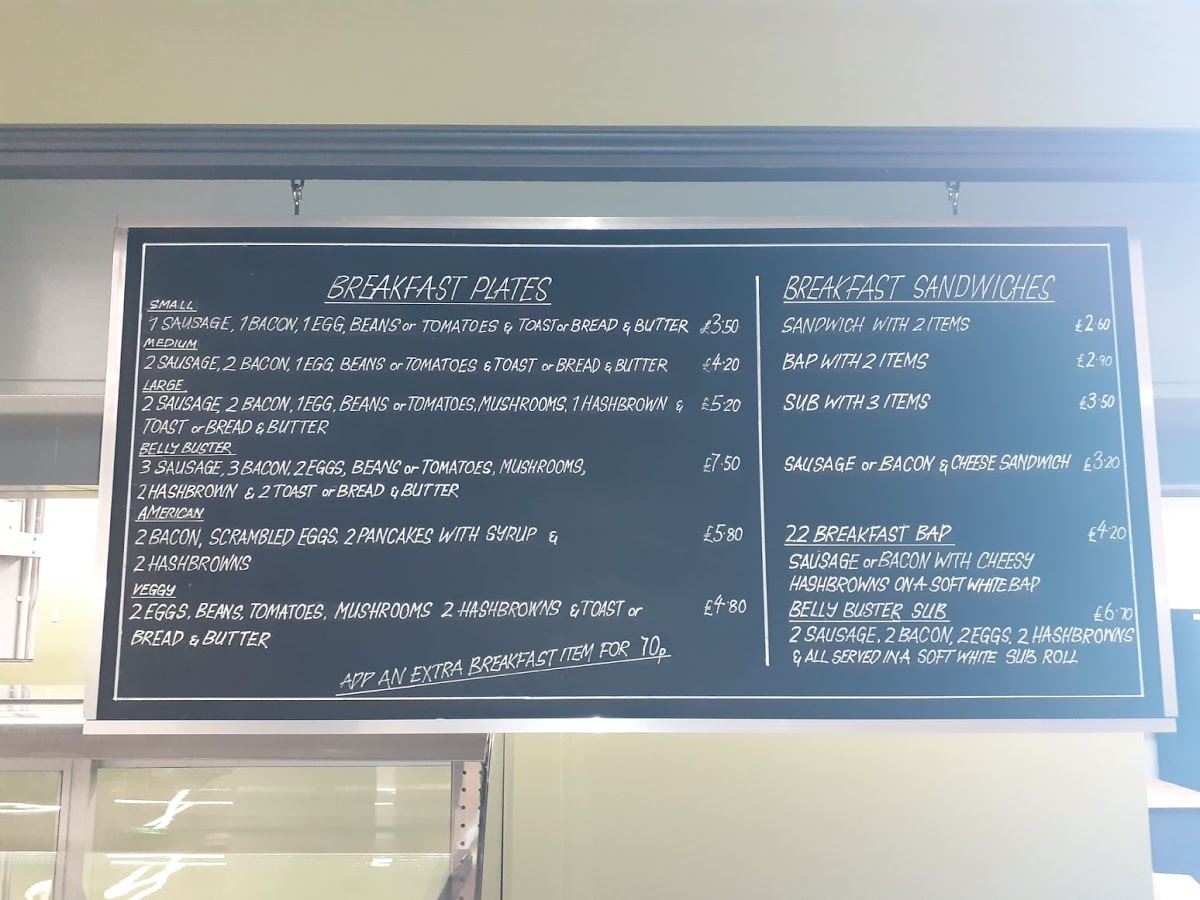 BREAKFAST PLATES
SMALL
1 SAUSAGE, 1 BACON, 1 EGG, BEANS or TOMATOES & TOAST or BREAD & BUTTER £3·50
MEDIUM
2 SAUSAGE, 2 BACON, 1 EGG, BEANS or TOMATOES & TOAST or BREAD & BUTTER £4·20
LARGE
2 SAUSAGE, 2 BACON, 1 EGG, BEANS or TOMATOES, MUSHROOMS, 1 HASHBROWN & £5·20
TOAST or BREAD & BUTTER
BELLY BUSTER
3 SAUSAGE, 3 BACON, 2 EGGS, BEANS or TOMATOES, MUSHROOMS, £7·50
2 HASHBROWN & 2 TOAST or BREAD & BUTTER
AMERICAN
2 BACON, SCRAMBLED EGGS, 2 PANCAKES WITH SYRUP & £5·80
2 HASHBROWNS
VEGGY
2 EGGS, BEANS, TOMATOES, MUSHROOMS 2 HASHBROWNS & TOAST or £4·80
BREAD & BUTTER
ADD AN EXTRA BREAKFAST ITEM FOR 70p
BREAKFAST SANDWICHES
SANDWICH WITH 2 ITEMS £2·60
BAP WITH 2 ITEMS £2·90
SUB WITH 3 ITEMS £3·50
SAUSAGE or BACON & CHEESE SANDWICH £3·20
22 BREAKFAST BAP £4·20
SAUSAGE or BACON WITH CHEESY
HASHBROWNS ON A SOFT WHITE BAP
BELLY BUSTER SUB £6·70
2 SAUSAGE, 2 BACON, 2 EGGS, 2 HASHBROWNS
& ALL SERVED IN A SOFT WHITE SUB ROLL